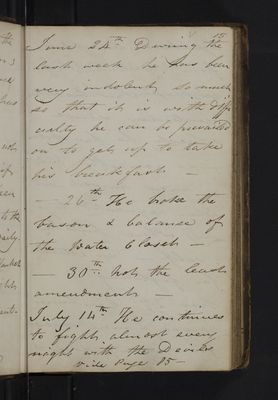 15
June 24th During the
last week he has been
very indolent, so much
so that it is with diffi
culty he can be prevailed
on to get up to take
his breakfast —
— 26th He broke the
bason & balance of
the Water Closet —
— 30th. Not the least
amendment —
July 14th He continues
to fight almost every
night with the Devils
vide Page 15 —